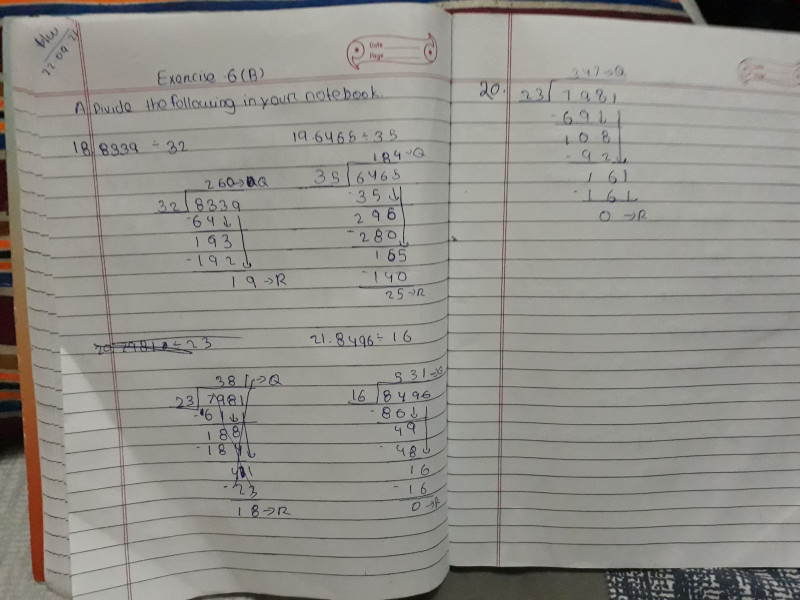 H/W
22.09.21
Date
Page
Exercise 6(B)
A. Divide the following in your notebook.
18. 8339 ÷ 32
260→Q
32 8339
-64↓
193
-192↓
19→R
19. 6465 ÷ 35
184→Q
35 6465
-35↓
296
-280↓
165
-140
25→R
÷ 23
38 →Q
23 7981
188
-23
18→R
21. 8496 ÷ 16
531→Q
16 8496
-80↓
49
-48↓
16
-16
0→R
20.
347→Q
23 7981
-69↓
108
-92↓
161
-161
0→R